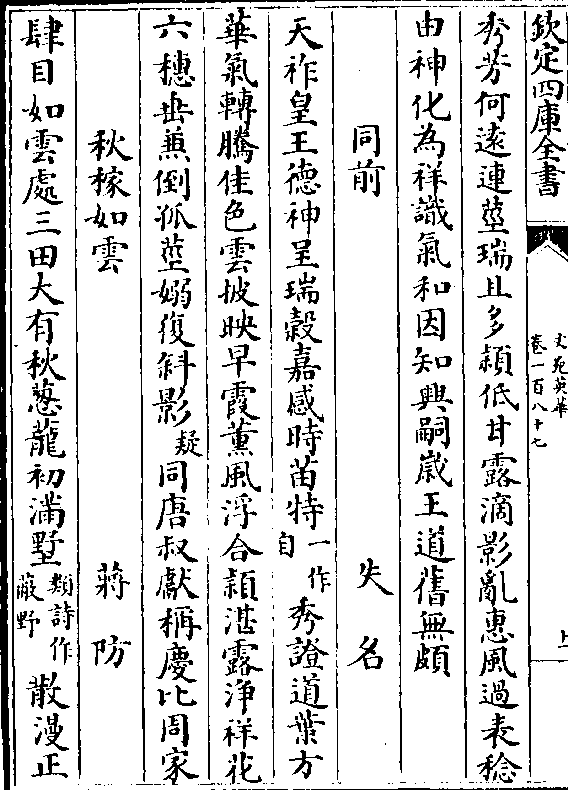 欽定四庫全書
文苑英華
卷一百八十七
秀芳何遠連莖瑞且多頴低甘露滴影亂惠風過表稔
由神化為祥識氣和因知興嗣嵗王道舊無頗
同前 失名
天祚皇王德神呈瑞穀嘉感時苗特一作自秀證道葉方
華氣轉騰佳色雲披映早霞薫風浮合頴湛露淨祥花
六穗垂兼倒孤莖嫋復斜影疑同唐叔獻稱慶比周家
秋稼如雲 蔣防
肆目如雲處三田大有秋葱蘢初滿墅類詩作蔽野散漫正